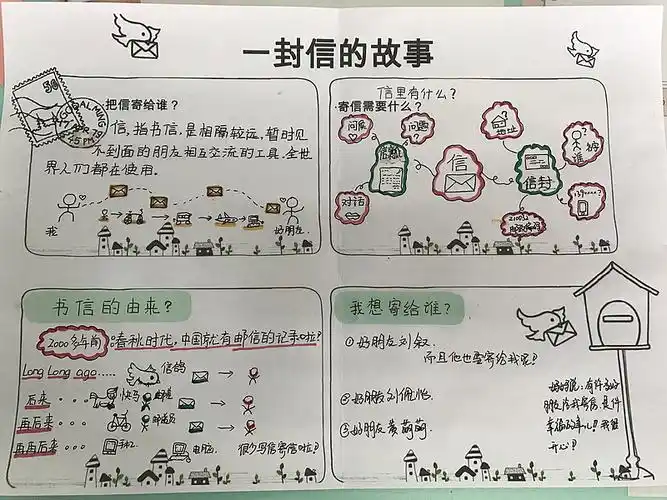 一封信的故事
50
把信寄给谁？
信，指书信，是相隔较远，暂时见
不到面的朋友相互交流的工具。全世
界人们都在使用。
我
好朋友.
信里有什么？
寄信需要什么？
问候
问题?
对话
信
信封
地址
210032
书信的由来？
2000多年前
:春秋时代，中国就有邮信的记录啦！
Long Long ago......
信鸽
后来...
快马
再后来...
邮递员
再再后来...
手机
电脑
很少写信寄信啦！
我想寄给谁？
①好朋友刘叙.
而且他也要寄给我呢！
②好朋友刘佩怡.
③好朋友姜萌萌.
开心！